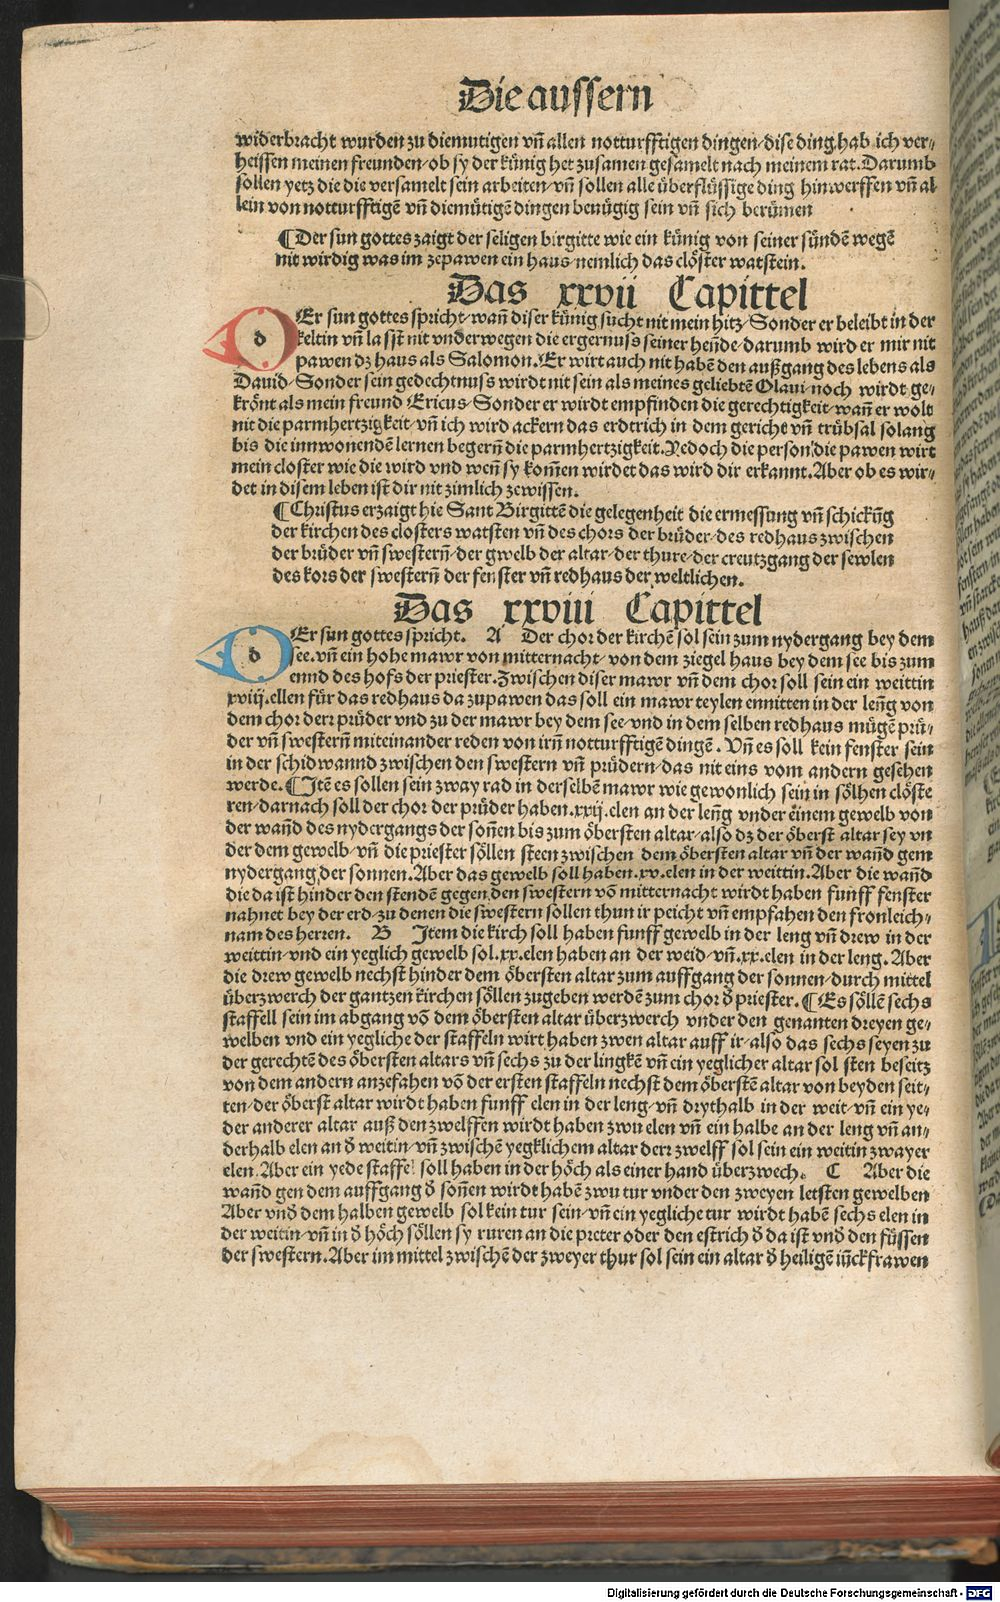 Die aussern
widerbracht wurden zu diemutigen vñ allen notturfftigen dingen/dise ding hab ich ver⸗
heissen meinen freunden/ob sy der künig het zusamen gesamelt nach meinem rat. Darumb
sollen yetz die die versamelt sein arbeiten/vñ sollen alle überflüssige ding hinwerffen vñ al
lein von notturfftigē vñ diemütigē dingen benügig sein vñ sich berümen
¶Der sun gottes zaigt der seligen birgitte wie ein künig von seiner sündē wegē
nit wirdig was im zepawen ein haus/nemlich das clöster watstein.
Das xxvii Capittel
dEr sun gottes spricht/wañ diser künig sucht nit mein hitz/Sonder er beleibt in der
keltin vñ lasst nit vnderwegen die ergernuss seiner heñde/darumb wird er mir nit
pawen dz haus als Salomon. Er wirt auch nit habē den außgang des lebens als
Dauid/Sonder sein gedechtnuss wirdt nit sein als meines geliebtē Olaui/noch wirdt ge⸗
krönt als mein freund Ericus/Sonder er wirdt empfinden die gerechtigkeit/wañ er wolt
nit die parmhertzigkeit/vñ ich wird ackern das erdtrich in dem gericht vñ trübsal solang
bis die innwonendē lernen begerñ die parmhertzigkeit. Yedoch die person/die pawen wirt
mein closter wie die wird vnd weñ sy kom̄en wirdet das wird dir erkannt. Aber ob es wir⸗
det in disem leben ist dir nit zimlich zewissen.
¶Christus erzaigt hie Sant Birgittē die gelegenheit die ermessung vñ schickuñg
der kirchen des closters watsten vñ des chors der brüder/des redhaus zwischen
der brüder vñ swesterñ/der gwelb der altar/der thure/der creutzgang der sewlen
des kors der swesterñ der fenster vñ redhaus der weltlichen.
Das xxviii Capittel
dEr sun gottes spricht. A Der chor der kirchē sol sein zum nydergang bey dem
see. vñ ein hohe mawr von mitternacht/von dem ziegel haus bey dem see bis zum
ennd des hofs der priester. Zwischen diser mawr vñ dem chor soll sein ein weittin
xviij. ellen für das redhaus da zupawen das soll ein mawr teylen ennitten in der leñg von
dem chor derr prüder vnd zu der mawr bey dem see/vnd in dem selben redhaus mügē prü⸗
der vñ swesterñ miteinander reden von irñ notturfftigē dingē. Vñ es soll kein fenster sein
in der schidwannd zwischen den swestern vñ prüdern/das nit eins vom andern gesehen
werde. ¶Jtē es sollen sein zway rad in derselbē mawr wie gewonlich sein in sölhen clöste
ren/darnach soll der chor der prüder haben. xxij. elen an der leñg vnder einem gewelb von
der wañd des nydergangs der soñen bis zum öbersten altar/also dz der öberst altar sey vn
der dem gewelb/vñ die priester söllen steen zwischen dem öbersten altar vñ der wañd gem
nydergang der sonnen. Aber das gewelb soll haben. xv. elen in der weittin. Aber die wañd
die da ist hinder den stendē gegen den swestern vō mitternacht wirdt haben funff fenster
nahnet bey der erd/zu denen die swestern sollen thun ir peicht vñ empfahen den fronleich⸗
nam des herren. B Jtem die kirch soll haben funff gewelb in der leng vñ drew in der
weittin/vnd ein yeglich gewelb sol. xx. elen haben an der weid/vñ. xx. elen in der leng. Aber
die drew gewelb nechst hinder dem öbersten altar zum auffgang der sonnen/durch mittel
überzwerch der gantzen kirchen söllen zugeben werdē zum chor ð priester. ¶Es söllē sechs
staffell sein im abgang vō dem öbersten altar überzwerch vnder den genanten dreyen ge⸗
welben vnd ein yegliche der staffeln wirt haben zwen altar auff ir/also das sechs seyen zu
der gerechtē des öbersten altars vñ sechs zu der lingkē vñ ein yeglicher altar sol sten beseitz
von dem andern anzefahen vō der ersten staffeln nechst dem öberstē altar von beyden seit⸗
ten/der öberst altar wirdt haben funff elen in der leng/vñ drythalb in der weit/vñ ein ye⸗
der anderer altar auß den zwelffen wirdt haben zwu elen vñ ein halbe an der leng vñ an⸗
derhalb elen an ð weitin/vñ zwischē yegklichem altar derr zwelff sol sein ein weitin zwayer
elen. Aber ein yede staffel soll haben in der höch als einer hand überzwech. C Aber die
wañd gen dem auffgang ð soñen wirdt habē zwu tur vnder den zweyen letsten gewelben
Aber vnð dem halben gewelb sol kein tur sein/vñ ein yegliche tur wirdt habē sechs elen in
der weitin/vñ in ð höch söllen sy ruren an die preter oder den estrich ð da ist vnð den füssen
der swestern. Aber im mittel zwischē der zweyer thur sol sein ein altar ð heiligē iückfrawen
Digitalisierung gefördert durch die Deutsche Forschungsgemeinschaft - DFG